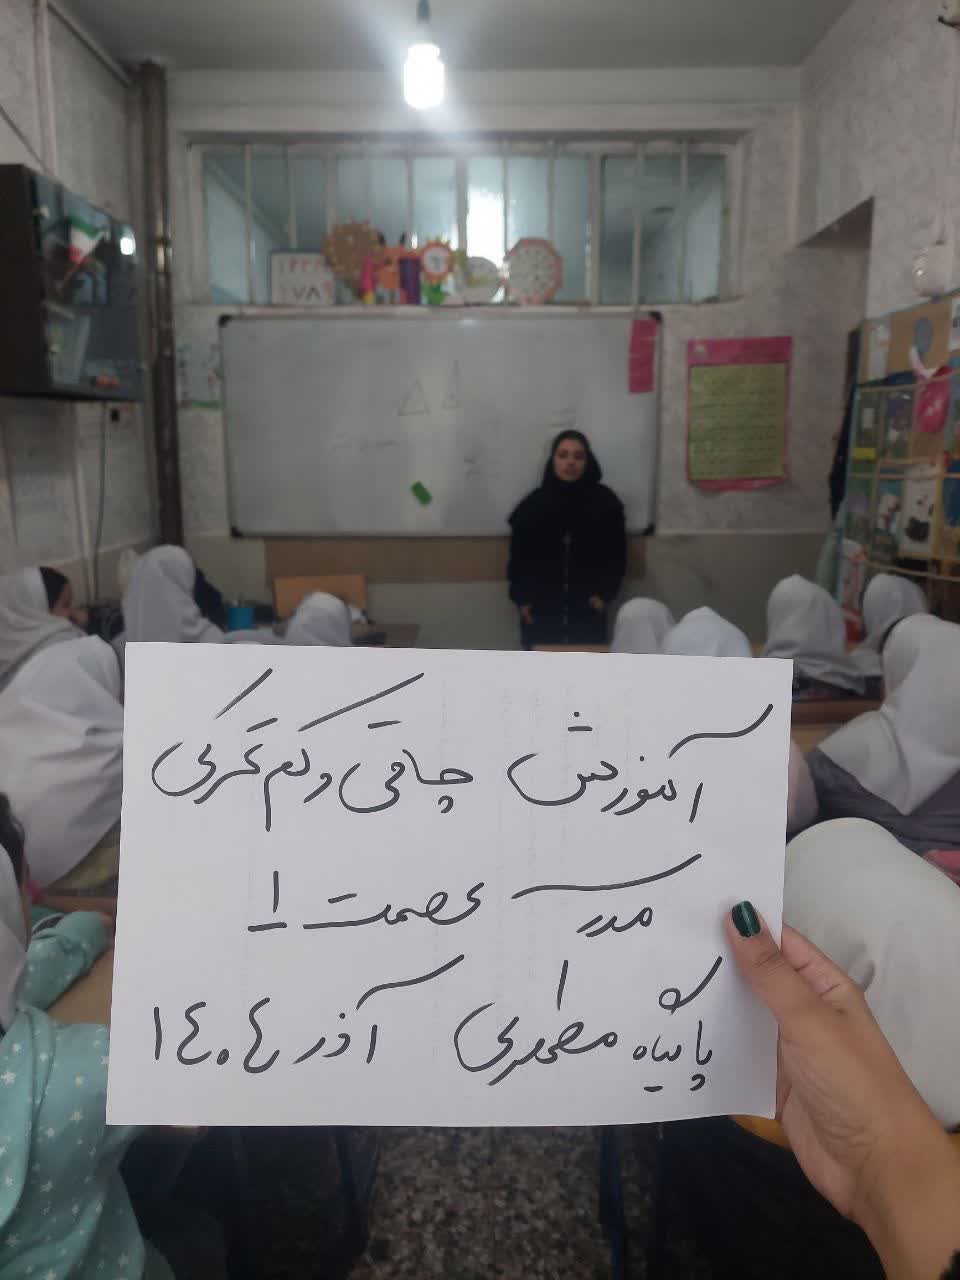 آموزش چاقی و کم تحرکی
مدرسه عصمت ۱
پایگاه مطهری آذر ۱۴۰۴